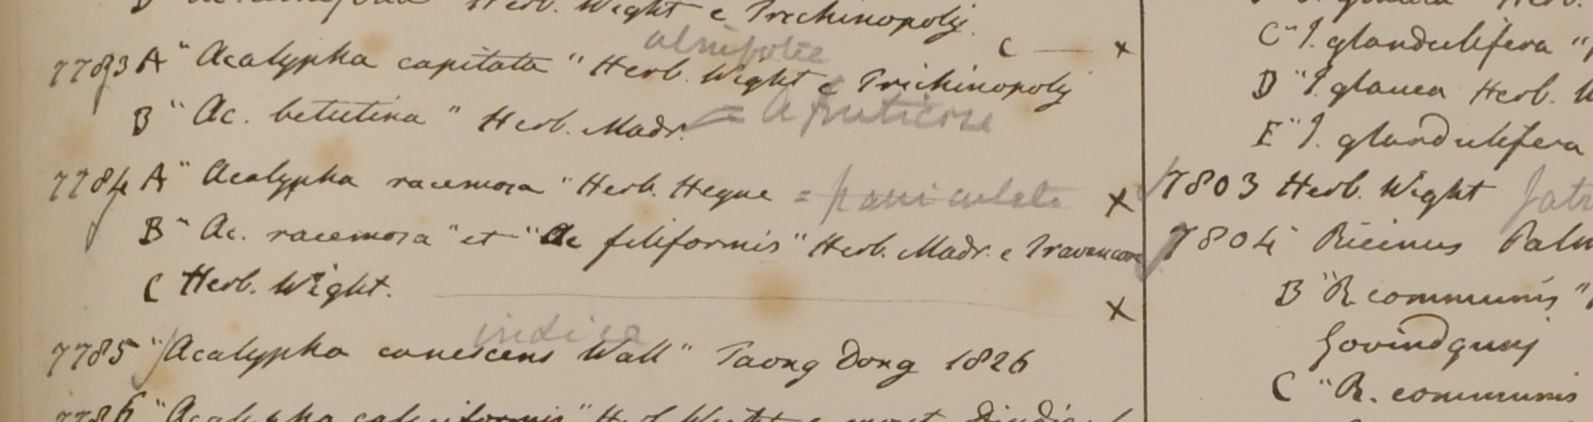 Herb. Wight e Trichinopoly.
alnifolia C — x
7783 A "Acalypha capitata" Herb. Wight e Trichinopoly
B "Ac. betulina" Herb. Madr. = A fruticosa
7784 A "Acalypha racemosa" Herb. Heyne = paniculata x
B "Ac. racemosa" et "Ac filiformis" Herb. Madr. e Travancore
C Herb. Wight. x
indica
7785 "Acalypha canescens Wall" Taong Dong 1826
7786 "Acalypha Herb. Wight
C "J. glandulifera "
D "J. glauca Herb.
E "J. glandulifera
7803 Herb. Wight
7804 Ricinus
B "R communis"
Govindgunj
C "R. communis